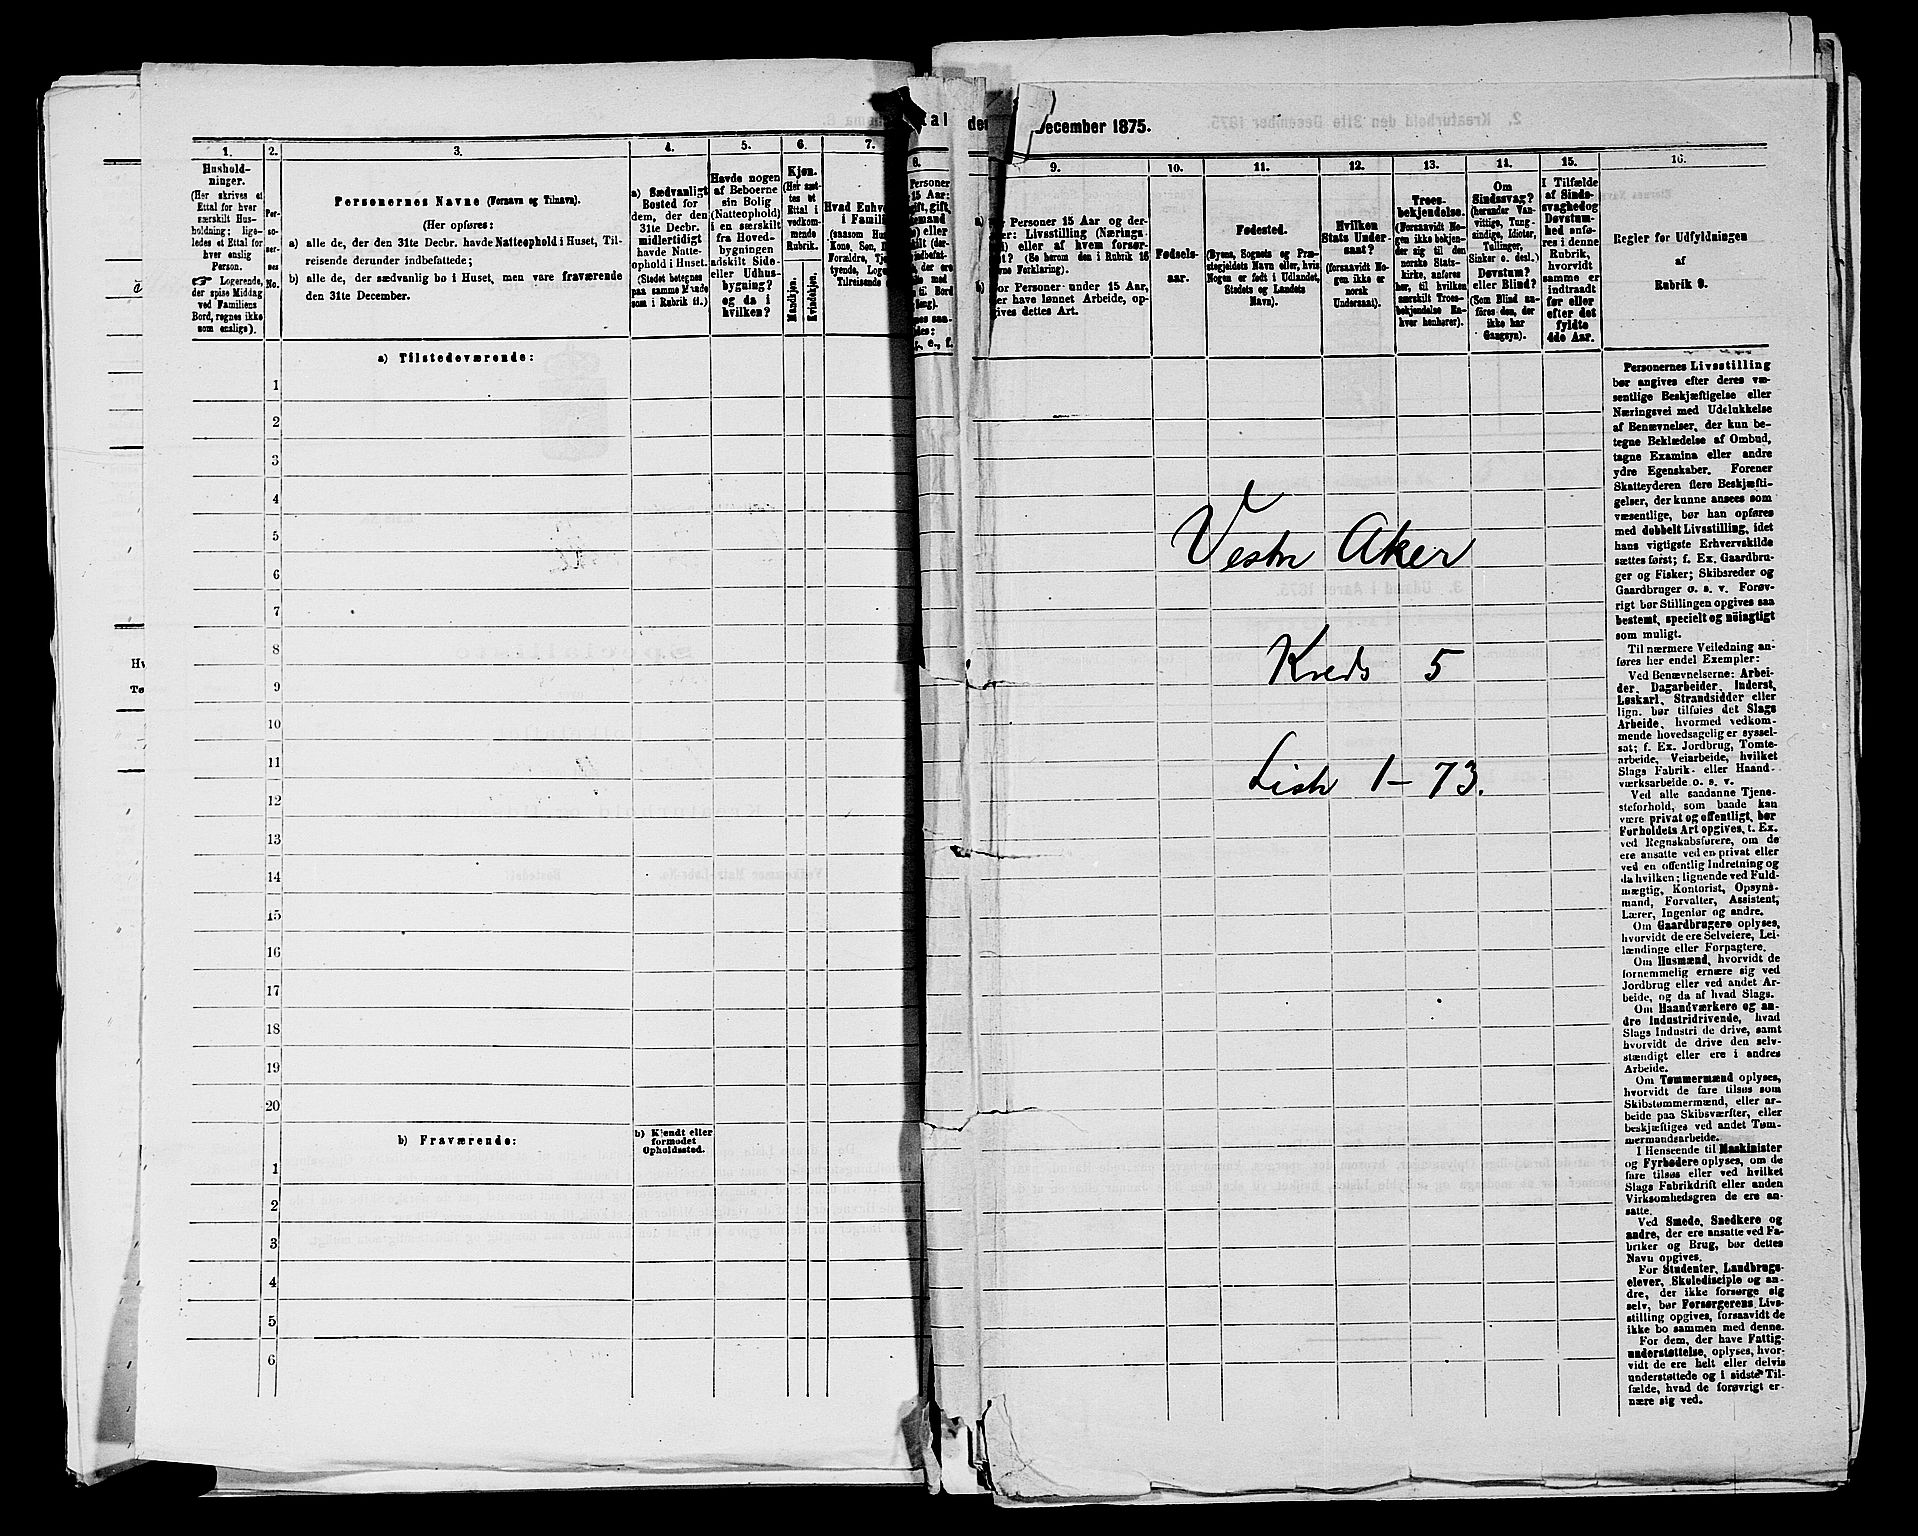 December 1875.
1.
Hushold-
ninger.
(Her skrives et
Ettal for hver
særskilt Hus-
holdning; lige-
ledes et Ettal for
hver enslig
Person.
Logerende,
der spise Middag
ved Familiens
Bord, regnes ikke
som enslige).
2.
No.
3.
Personernes Navne (Fornavn og Tilnavn).
(Her opføres:
a) alle de, der den 31te Decbr. havde Natteophold i Huset, Til-
reisende derunder indbefattede;
b) alle de, der sædvanlig bo i Huset, men vare fraværende
den 31te December.
4.
a) Sædvanligt
Bosted for
dem, der den
31te Decbr.
midlertidigt
havde Natte-
ophold i Huset.
(Stedet betegnes
paa samme Maade
som i Rubrik 11.)
5.
Havde nogen
af Beboerne
sin Bolig
(Natteophold)
i en særskilt
fra Hoved-
bygningen
adskilt Side-
eller Udhus-
bygning?
og da i
hvilken?
6.
Kjøn.
(Her sæt-
tes et
Ettal i
vedkom-
mende
Rubrik.
Mandkjøn.
Kvindekjøn.
7.
Hvad Enhver
i Familie
(saasom Hus
Kone, Søn, D
Forældre, Tje
tyende, Loge
Tilreisende
8.
Personer
15 Aar:
9.
Personer 15 Aar og der-
Livsstilling (Nærings-
eller af hvem forsør-
(Se herom den i Rubrik 16
Forklaring).
or Personer under 15 Aar,
er have lønnet Arbeide, op-
gives dettes Art.
10.
Fødsels-
aar.
11.
Fødested.
(Byens, Sognets og Præ-
stegjeldets Navn eller, hvis
Nogen er født i Udlandet,
Stedets og Landets
Navn).
12.
Hvilken
Stats Under-
saat?
(forsaavidt No-
gen ikke er
norsk
Undersaat).
13.
Troes-
bekjendelse.
(Forsaavidt No-
gen ikke bekjen-
der sig til den
norske Stats-
kirke, anføres
her, til hvilken
særskilt Troes-
bekjendelse En-
hver henhører).
14.
Om
Sindssvag?
(herunder Van-
vittige, Tung-
sindige, Idioter,
Tullinger,
Sinker o. desl.)
Døvstum?
eller Blind?
(Som Blind an-
føres den, der
ikke har
Gangsyn).
15.
I Tilfælde
af Sinds-
svaghed og
Døvstum-
hed anfø-
res i denne
Rubrik,
hvorvidt
samme er
indtraadt
før eller
efter det
fyldte
4de Aar.
16.
Regler for Udfyldningen
af
Rubrik 9.
a) Tilstedeværende:
1
2
3
4
5
6
7
8
9
10
11
12
13
14
15
16
17
18
19
20
b) Fraværende:
b) Kjendt eller
formodet
Opholdssted.
1
2
3
4
5
6
Vestre Aker
Kreds 5
Liste 1-73.
Personernes Livsstilling
bør angives efter deres væ-
sentlige Beskjæftigelse eller
Næringsvei med Udelukkelse
af Benævnelser, der kun be-
tegne Beklædelse af Ombud,
tagne Examina eller andre
ydre Egenskaber. Forener
Skatteyderen flere Beskjæfti-
gelser, der kunne ansees som
væsentlige, bør han opføres
med dobbelt Livsstilling, idet
hans vigtigste Erhvervskilde
sættes først; f. Ex. Gaardbru-
ger og Fisker; Skibsreder og
Gaardbruger o. s. v. Forøv-
rigt bør Stillingen opgives saa
bestemt, specielt og nøiagtigt
som muligt.
Til nærmere Veiledning an-
føres her endel Exempler:
Ved Benævnelserne: Arbei-
der, Dagarbeider, Inderst,
Løskarl, Strandsidder eller
lign. bør tilføies det Slags
Arbeide, hvormed vedkom-
mende hovedsagelig er syssel-
sat; f. Ex. Jordbrug, Tomte-
arbeide, Veiarbeide, hvilket
Slags Fabrik- eller Haand-
værksarbeide o. s. v.
Ved alle saadanne Tjene-
steforhold, som baade kan
være privat og offentligt, bør
Forholdets Art opgives, t. Ex.
ved Regnskabsførere, om de
ere ansatte ved en privat eller
ved en offentlig Indretning og
da hvilken; lignende ved Fuld-
mægtig, Kontorist, Opsyns-
mand, Forvalter, Assistent,
Lærer, Ingeniør og andre.
Om Gaardbrugere oplyses,
hvorvidt de ere Selveiere, Lei-
lændinge eller Forpagtere.
Om Husmænd, hvorvidt de
fornemmelig ernære sig ved
Jordbrug eller ved andet Ar-
beide, og da af hvad Slags.
Om Haandværkere og an-
dre Industridrivende, hvad
Slags Industri de drive, samt
hvorvidt de drive den selv-
stændigt eller ere i andres
Arbeide.
Om Tømmermænd oplyses,
hvorvidt de fare tilsøs som
Skibstømmermænd, eller ar-
beide paa Skibsværfter, eller
beskjæftiges ved andet Tøm-
mermandsarbeide.
I Henseende til Maskinister
og Fyrbødere oplyses, om de
fare tilsøs eller ved hvilket
Slags Fabrikdrift eller anden
Virksomhedsgren de ere an-
satte.
Ved Smede, Snedkere og
andre, der ere ansatte ved Fa-
briker og Brug, bør dettes
Navn opgives.
For Studenter, Landbrugs-
elever, Skoledisciple og an-
dre, der ikke forsørge sig
selv, bør Forsørgerens Livs-
stilling opgives, forsaavidt de
ikke bo sammen med denne.
For dem, der have Fattig-
understøttelse, oplyses, hvor-
vidt de ere helt eller delvis
understøttede og i sidste Til-
fælde, hvad de forøvrigt er-
nære sig ved.